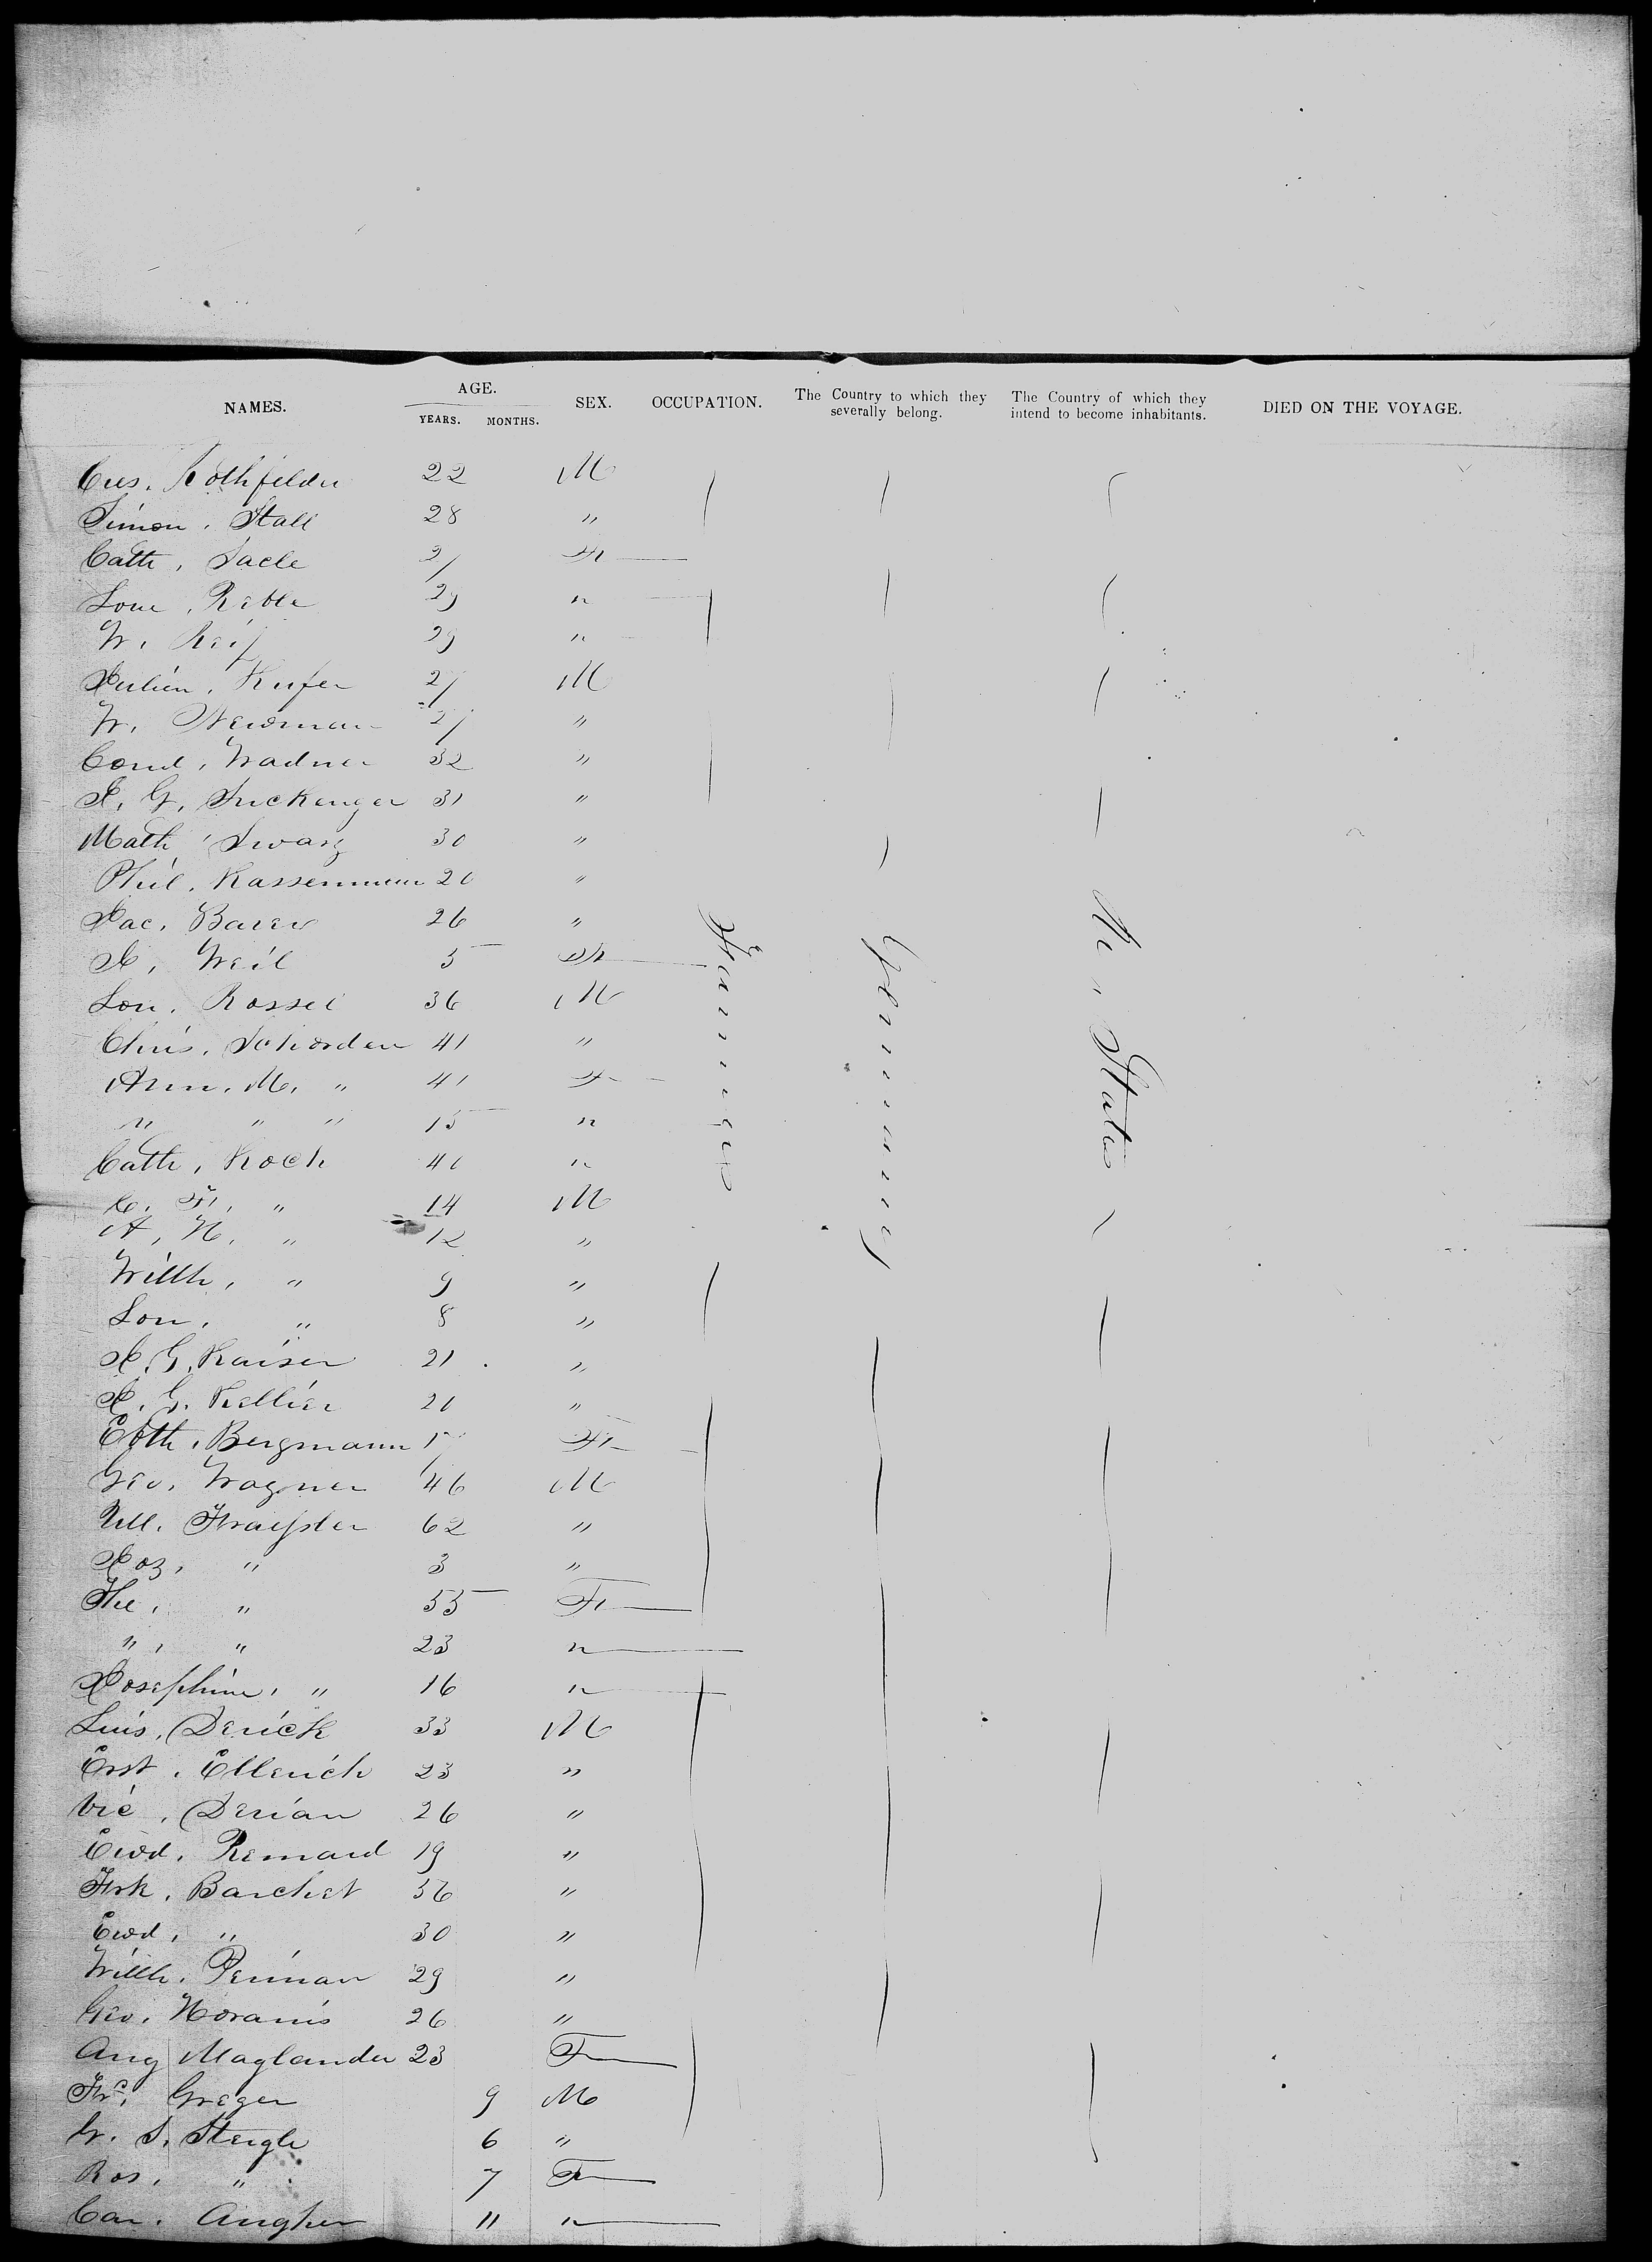 NAMES. AGE. YEARS. MONTHS. SEX. OCCUPATION. The Country to which they severally belong. The Country of which they intend to become inhabitants. DIED ON THE VOYAGE.
Rothfelder 22 M
Simon. Stall 28 "
Cath, Sacle 27 F
29 "
W. Reif 29 "
Kufer 27 M
W. Newman 27 "
Wadner 32 "
J. G. 31 "
Math Swarz 30 "
Phil. 20 "
Jac. Bauer 26 "
J. Weil 5 F
Lou. 36 M
Chris. Schorden 41 "
Ann. M. " 41 F
" " " 15 "
Cath, Koch 40 "
C. F. " 14 M
A, H. " 12 "
Willh, " 9 "
Lou. " 8 "
J. G. Kaiser 21 "
J. G. Kellier 20 "
Bergmann 17 F
Geo. Wagner 46 M
62 "
Joz. " 3 "
The. " 55 F
" " 23 "
Josephine, " 16 "
Luis. Derick 33 M
Erst. Ellerich 23 "
Vic. Derian 26 "
Ewd. Remard 19 "
Frk. Barchet 36 "
Ewd. " 30 "
Willh. Periman 29 "
Geo. Horanis 26 "
Aug Maglander 23 F
Frs. Greger 9 M
S. Steigle 6 "
Ros. " 7 F
Car. Angher 11 "
Farmers
Germany
States